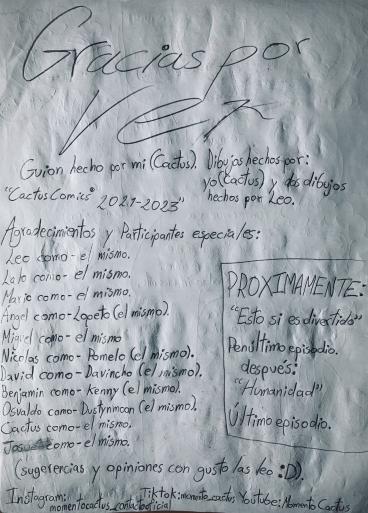 Gracias por
Ver
Guion hecho por mi (Cactus). Dibujos hechos por:
yo (Cactus) y dos dibujos
hechos por Leo.
"CactusComics® 2021-2023"
Agradecimientos y Participantes especiales:
Leo como- el mismo.
Lalo como- el mismo.
Mario como- el mismo.
Angel como- Lopeto (el mismo).
Miguel como- el mismo
Nicolas como- Pomelo (el mismo).
David como- Davincho (el mismo).
Benjamin como- Kenny (el mismo).
Osvaldo como- Dustynmoon (el mismo).
Cactus como- el mismo.
como- el mismo.
PROXIMAMENTE:
"Esto si es divertido"
Penúltimo episodio.
despues:
"Humanidad"
Último episodio.
(sugerencias y opiniones con gusto las leo :D).
Instagram: Tiktok: momento_cactus Youtube: Momento Cactus
momentocactus_contactooficial